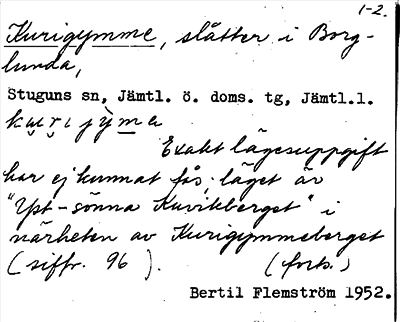 1-2.
Kurigymme, slåtter i Borg-
lunda,
Stuguns sn, Jämtl. ö. doms. tg, Jämtl.l.
kurijyma
Exakt lägesuppgift
har ej kunnat fås; läget är
"Yst-sönna Kuvikberget" i
närheten av Kurigymmeberget
(siffr. 96 ). (forts.)
Bertil Flemström 1952.